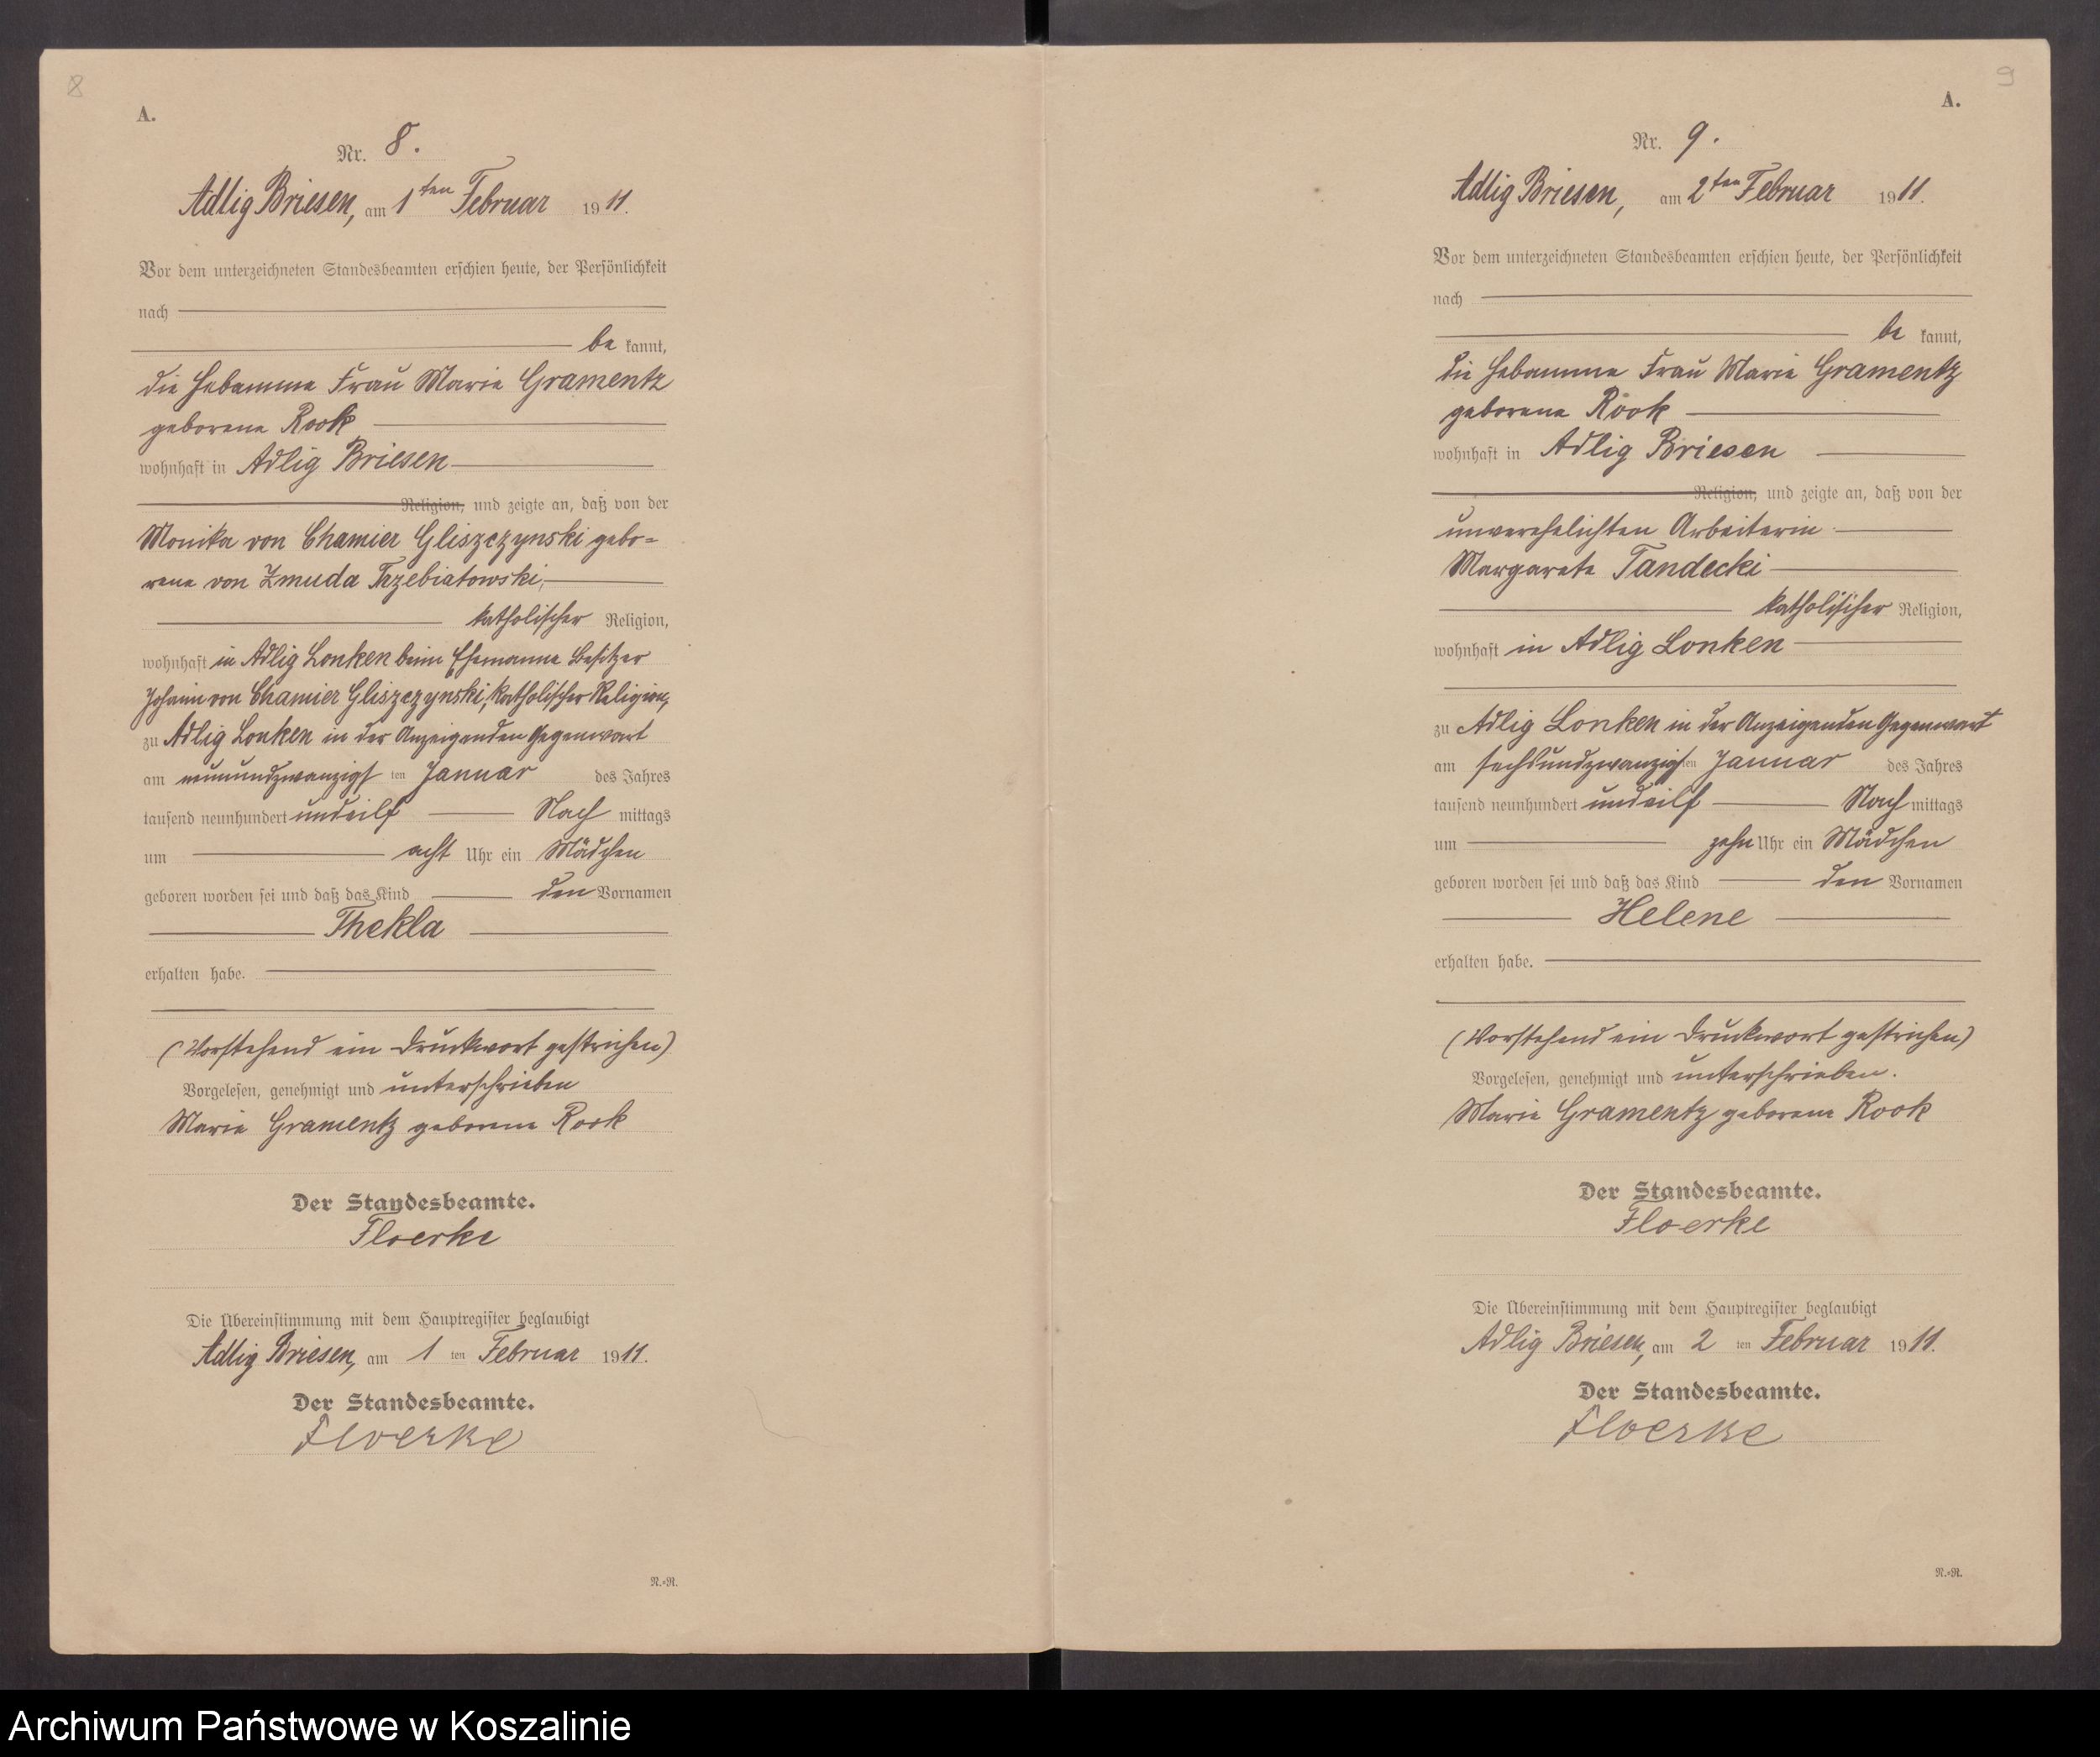 8
A.
Nr. 8.
Adlig Briesen, am 1ten Februar 1911.
Vor dem unterzeichneten Standesbeamten erschien heute, der Persönlichkeit
nach
be kannt,
die Hebamme Frau Marie Gramentz
geborene Rook
wohnhaft in Adlig Briesen
Religion, und zeigte an, daß von der
Monika von Chamier Gliszczynski gebo-
rene von Zmuda Trzebiatowski,
katholischer Religion,
wohnhaft in Adlig Lonken beim Ehemanne Besitzer
Johann von Chamier Gliszczynski, katholischer Religion,
zu Adlig Lonken in der Anzeigenden Gegenwart
am neunundzwanzigsten Januar des Jahres
tausend neunhundert undeilf Nach mittags
um acht Uhr ein Mädchen
geboren worden sei und daß das Kind den Vornamen
Thekla
erhalten habe.
(Vorstehend ein Druckwort gestrichen)
Vorgelesen, genehmigt und unterschrieben
Marie Gramentz geborene Rook
Der Standesbeamte.
Floerke
Die Übereinstimmung mit dem Hauptregister beglaubigt
Adlig Briesen, am 1 ten Februar 1911.
Der Standesbeamte.
Floerke
N.=N.
9
A.
Nr. 9.
Adlig Briesen, am 2ten Februar 1911.
Vor dem unterzeichneten Standesbeamten erschien heute, der Persönlichkeit
nach
be kannt,
die Hebamme Frau Marie Gramentz
geborene Rook
wohnhaft in Adlig Briesen
Religion, und zeigte an, daß von der
unverehelichten Arbeiterin
Margarete Tandecki
katholischer Religion,
wohnhaft in Adlig Lonken
zu Adlig Lonken in der Anzeigenden Gegenwart
am sechsundzwanzigsten Januar des Jahres
tausend neunhundert undeilf Nach mittags
um zehn Uhr ein Mädchen
geboren worden sei und daß das Kind den Vornamen
Helene
erhalten habe.
(Vorstehend ein Druckwort gestrichen)
Vorgelesen, genehmigt und unterschrieben.
Marie Gramentz geborene Rook
Der Standesbeamte.
Floerke
Die Übereinstimmung mit dem Hauptregister beglaubigt
Adlig Briesen, am 2 ten Februar 1911.
Der Standesbeamte.
Floerke
N.=N.
Archiwum Państwowe w Koszalinie